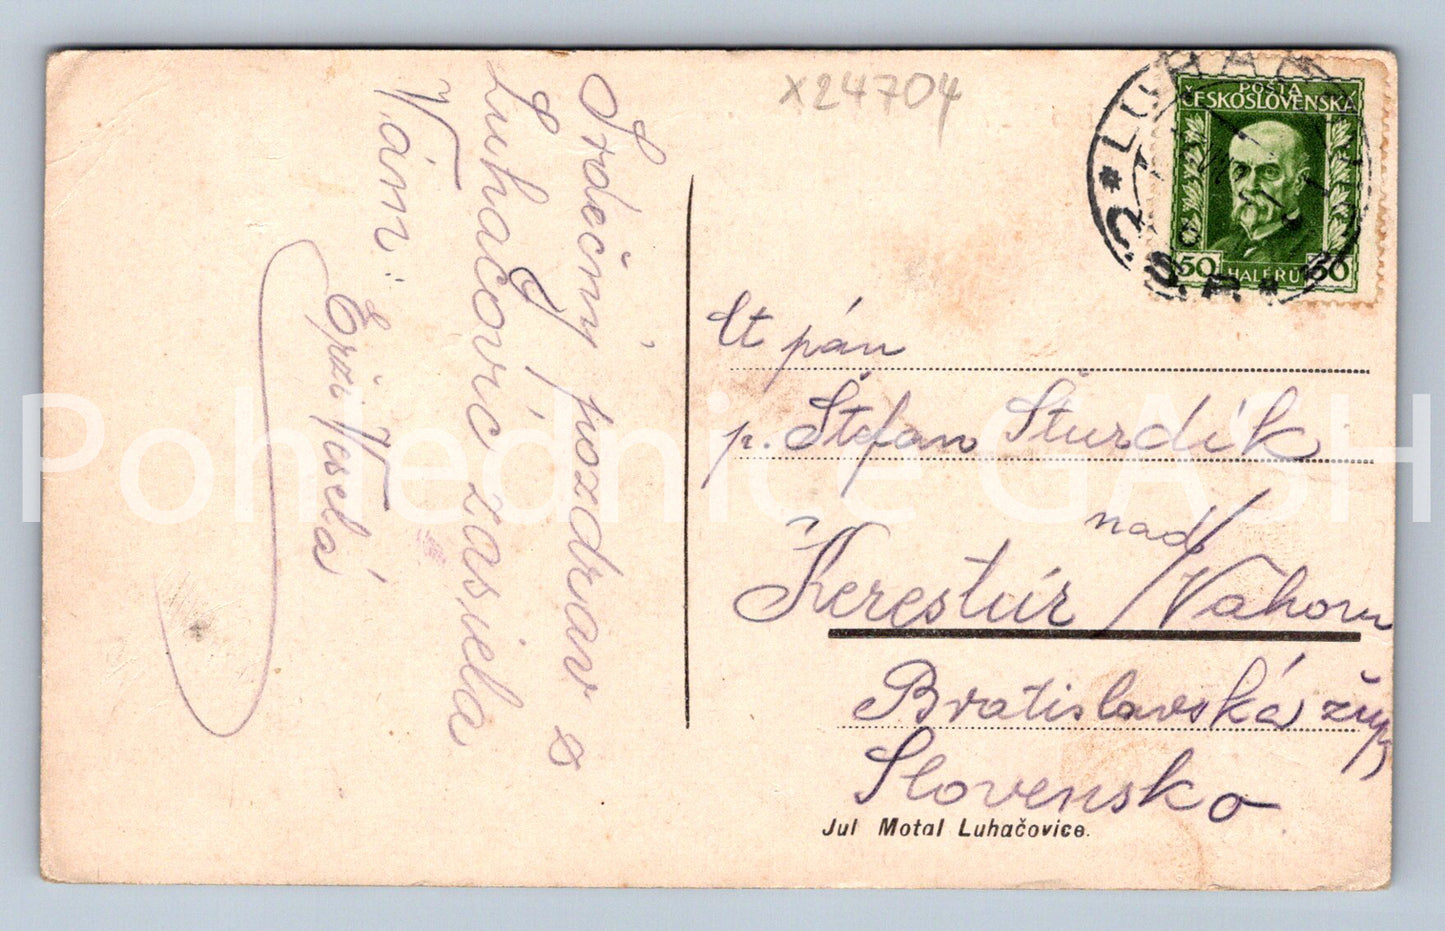 x24704
LUHAČ
POŠTA
ČESKOSLOVENSKÁ
50 HALÉŘŮ 50
Srdečný pozdrav z
Luhačovíc zasiela
Vám:
Erži Veselá
Ct pán
p. Štefan Šturdík
nad/
Kerestúr /Váhom
Bratislavská župa
Slovensko
Jul Motal Luhačovice.
Pohlednice GASH